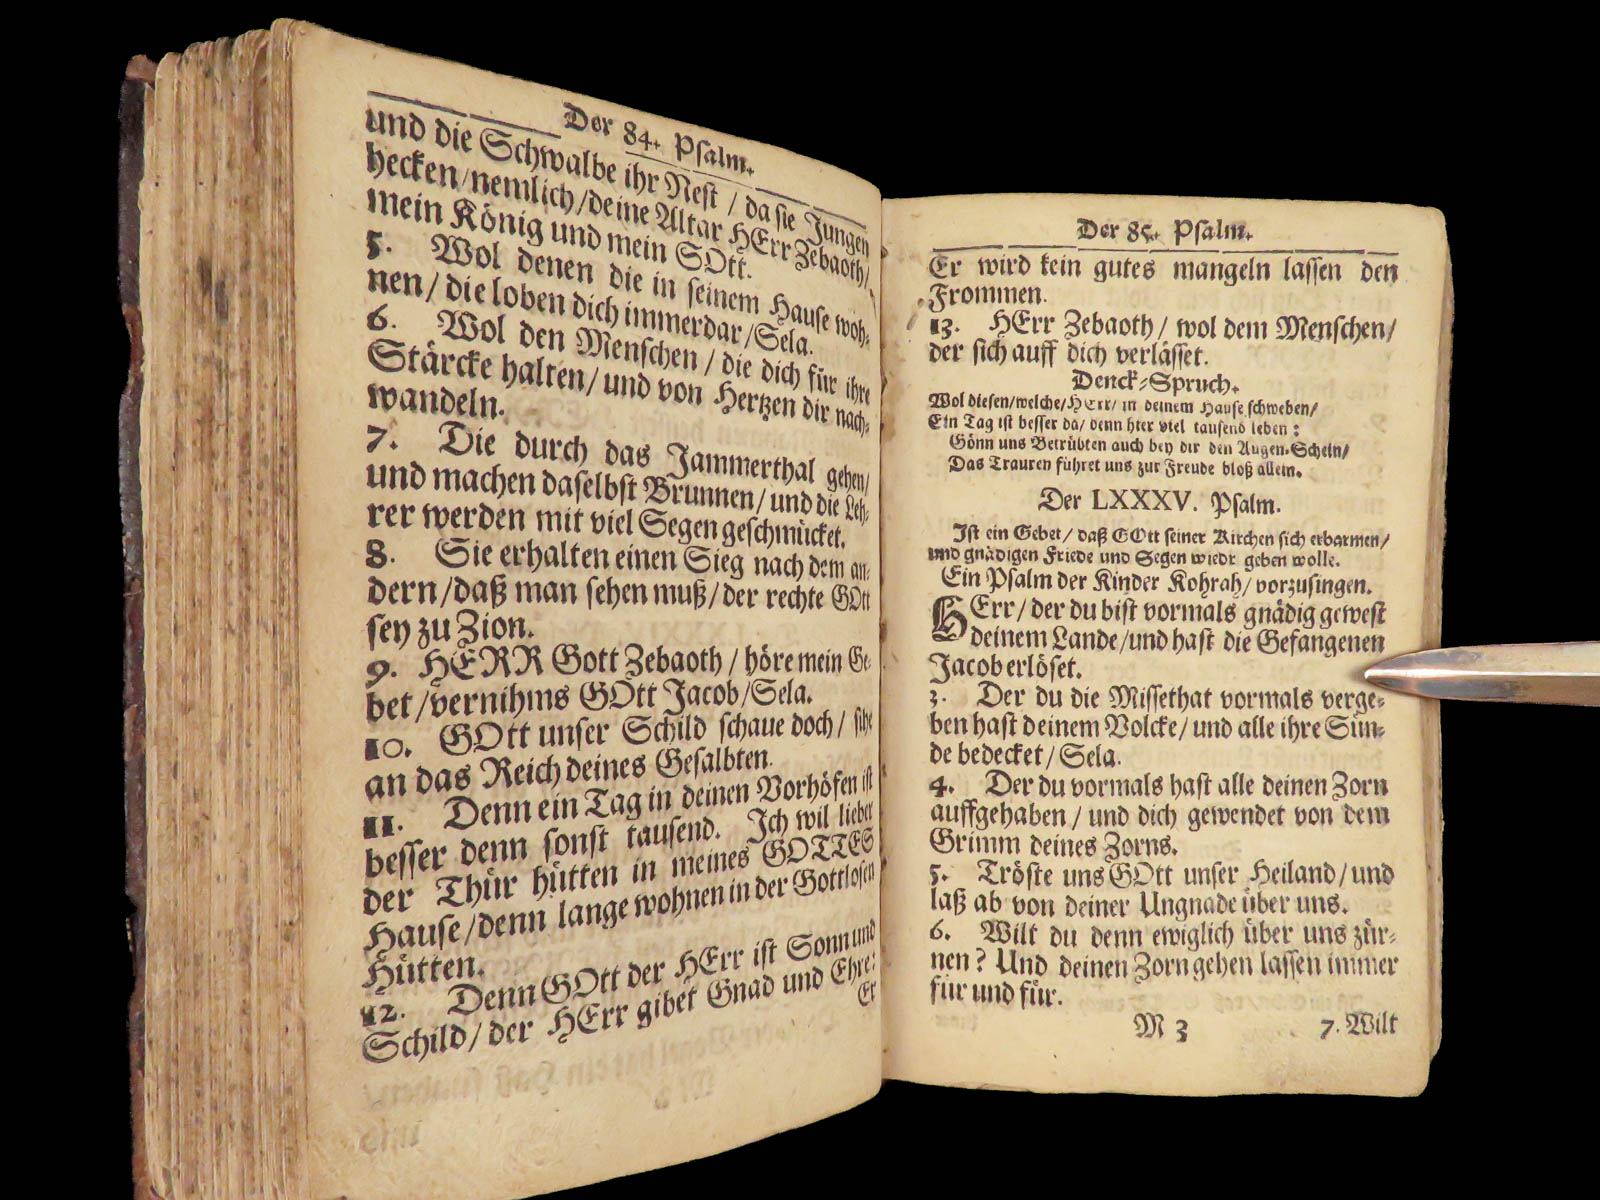 Der 84. Psalm.
und die Schwalbe ihr Nest / da sie Jungen
hecken/nemlich/deine Altar HErr Zebaoth/
mein König und mein GOtt.
5. Wol denen die in seinem Hause woh-
nen/ die loben dich immerdar/Sela.
6. Wol den Menschen / die dich für ihre
Stärcke halten/ und von Hertzen dir nach-
wandeln.
7. Die durch das Jammerthal gehen/
und machen daselbst Brunnen/ und die Leh-
rer werden mit viel Segen geschmücket.
8. Sie erhalten einen Sieg nach dem an-
dern/daß man sehen muß/der rechte GOtt
sey zu Zion.
9. HERR Gott Zebaoth / höre mein Ge-
bet/vernihms GOtt Jacob/Sela.
10. GOtt unser Schild schaue doch/ sihe
an das Reich deines Gesalbten.
11. Denn ein Tag in deinen Vorhöfen ist
besser denn sonst tausend. Ich wil lieber
der Thür hütten in meines GOTTES
Hause/denn lange wohnen in der Gottlosen
Hütten.
12. Denn GOtt der HErr ist Sonn und
Schild/ der HErr gibet Gnad und Ehre:
Er
Der 85. Psalm.
Er wird kein gutes mangeln lassen den
Frommen.
13. HErr Zebaoth/ wol dem Menschen/
der sich auff dich verlässet.
Denck-Spruch.
Wol diesen/welche/HErr/ in deinem Hause schweben/
Ein Tag ist besser da/ denn hier viel tausend leben:
Gönn uns Betrübten auch bey dir den Augen-Schein/
Das Trauren führet uns zur Freude bloß allein.
Der LXXXV. Psalm.
Ist ein Gebet/ daß GOtt seiner Kirchen sich erbarmen/
und gnädigen Friede und Segen wiedr geben wolle.
Ein Psalm der Kinder Kohrah/ vorzusingen.
HErr/ der du bist vormals gnädig gewest
deinem Lande/und hast die Gefangenen
Jacob erlöset.
3. Der du die Missethat vormals verge-
ben hast deinem Volcke/ und alle ihre Sün-
de bedecket/ Sela.
4. Der du vormals hast alle deinen Zorn
auffgehaben/ und dich gewendet von dem
Grimm deines Zorns.
5. Tröste uns GOtt unser Heiland/und
laß ab von deiner Ungnade über uns.
6. Wilt du denn ewiglich über uns zür-
nen? Und deinen Zorn gehen lassen immer
für und für.
M 3 7. Wilt